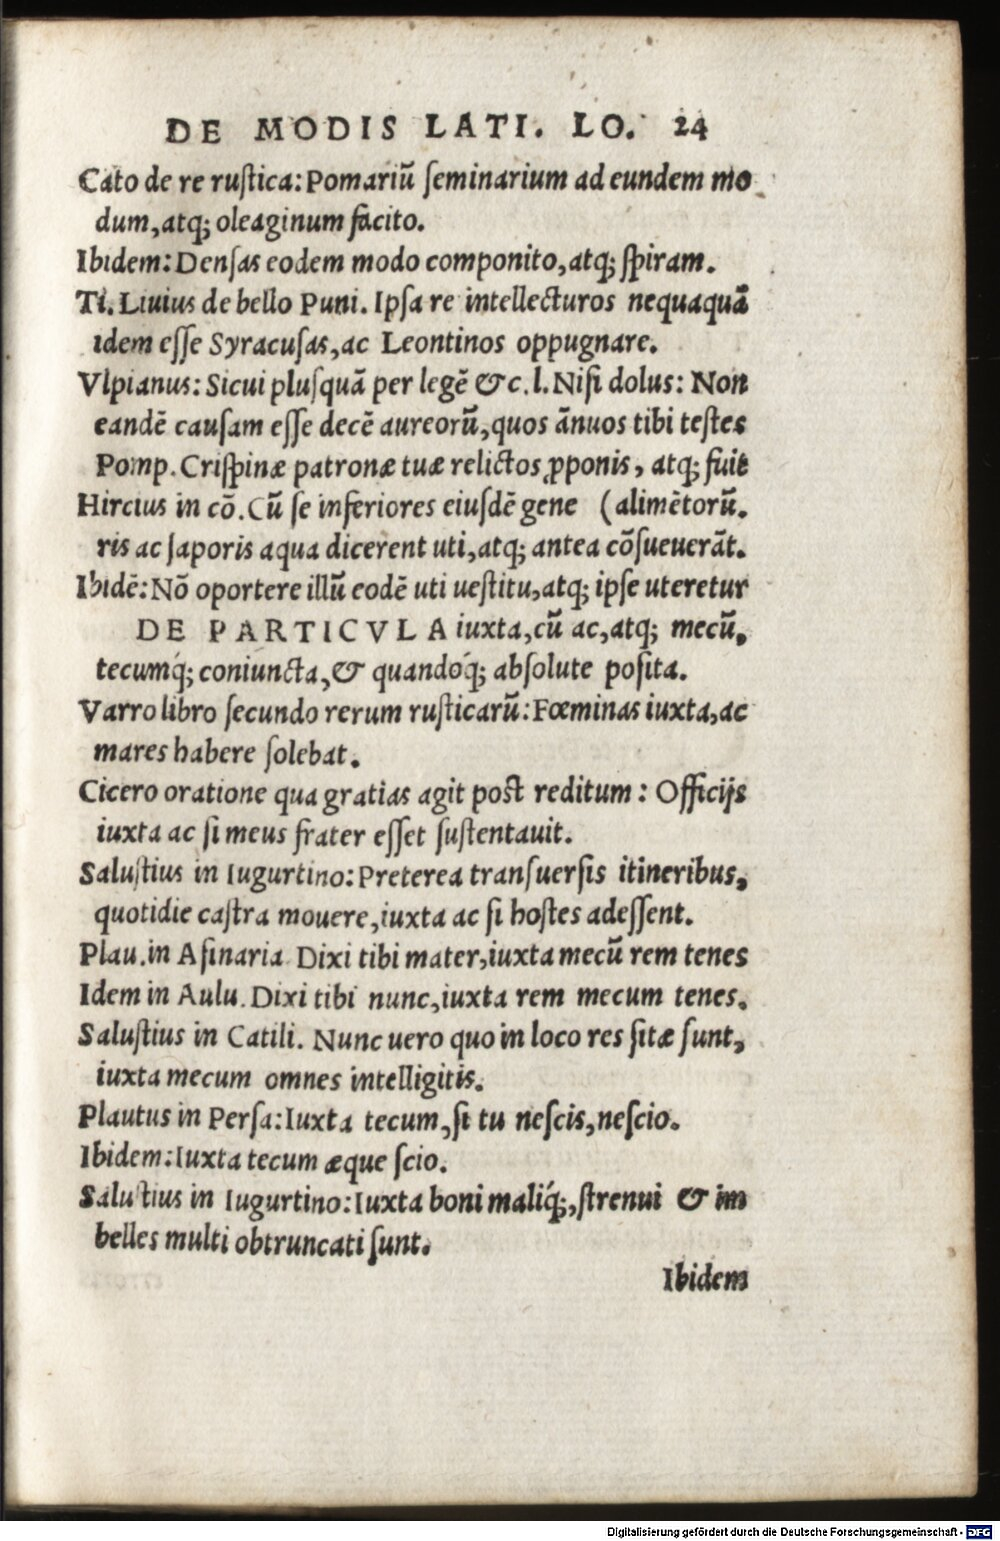 DE MODIS LATI. LO. 24
Cato de re ruſtica: Pomariū ſeminarium ad eundem mo
dum, atq; oleaginum facito.
Ibidem: Denſas eodem modo componito, atq; ſpiram.
Ti. Liuius de bello Puni. Ipſa re intellecturos nequaquā
idem eſſe Syracuſas, ac Leontinos oppugnare.
Vlpianus: Sicui pluſquā per legē &c. l. Niſi dolus: Non
eandē cauſam eſſe decē aureorū, quos ānuos tibi teſtes
Pomp. Criſpinæ patronæ tuæ relictos ꝓponis, atq; fuit
Hircius in cō. Cū ſe inferiores eiuſdē gene (alimētorū.
ris ac ſaporis aqua dicerent uti, atq; antea cōſueuerāt.
Ibidē: Nō oportere illū eodē uti ueſtitu, atq; ipſe uteretur
DE PARTICVLA iuxta, cū ac, atq; mecū,
tecumq́; coniuncta, & quandoq́; abſolute poſita.
Varro libro ſecundo rerum ruſticarū: Fœminas iuxta, ac
mares habere ſolebat.
Cicero oratione qua gratias agit poſt reditum: Officijs
iuxta ac ſi meus frater eſſet ſuſtentauit.
Saluſtius in Iugurtino: Preterea tranſuerſis itineribus,
quotidie caſtra mouere, iuxta ac ſi hoſtes adeſſent.
Plau. in Aſinaria Dixi tibi mater, iuxta mecū rem tenes
Idem in Aulu. Dixi tibi nunc, iuxta rem mecum tenes.
Saluſtius in Catili. Nunc uero quo in loco res ſitæ ſunt,
iuxta mecum omnes intelligitis.
Plautus in Perſa: Iuxta tecum, ſi tu neſcis, neſcio.
Ibidem: Iuxta tecum æque ſcio.
Saluſtius in Iugurtino: Iuxta boni maliq́;, ſtrenui & im
belles multi obtruncati ſunt.
Ibidem
Digitalisierung gefördert durch die Deutsche Forschungsgemeinschaft - DFG